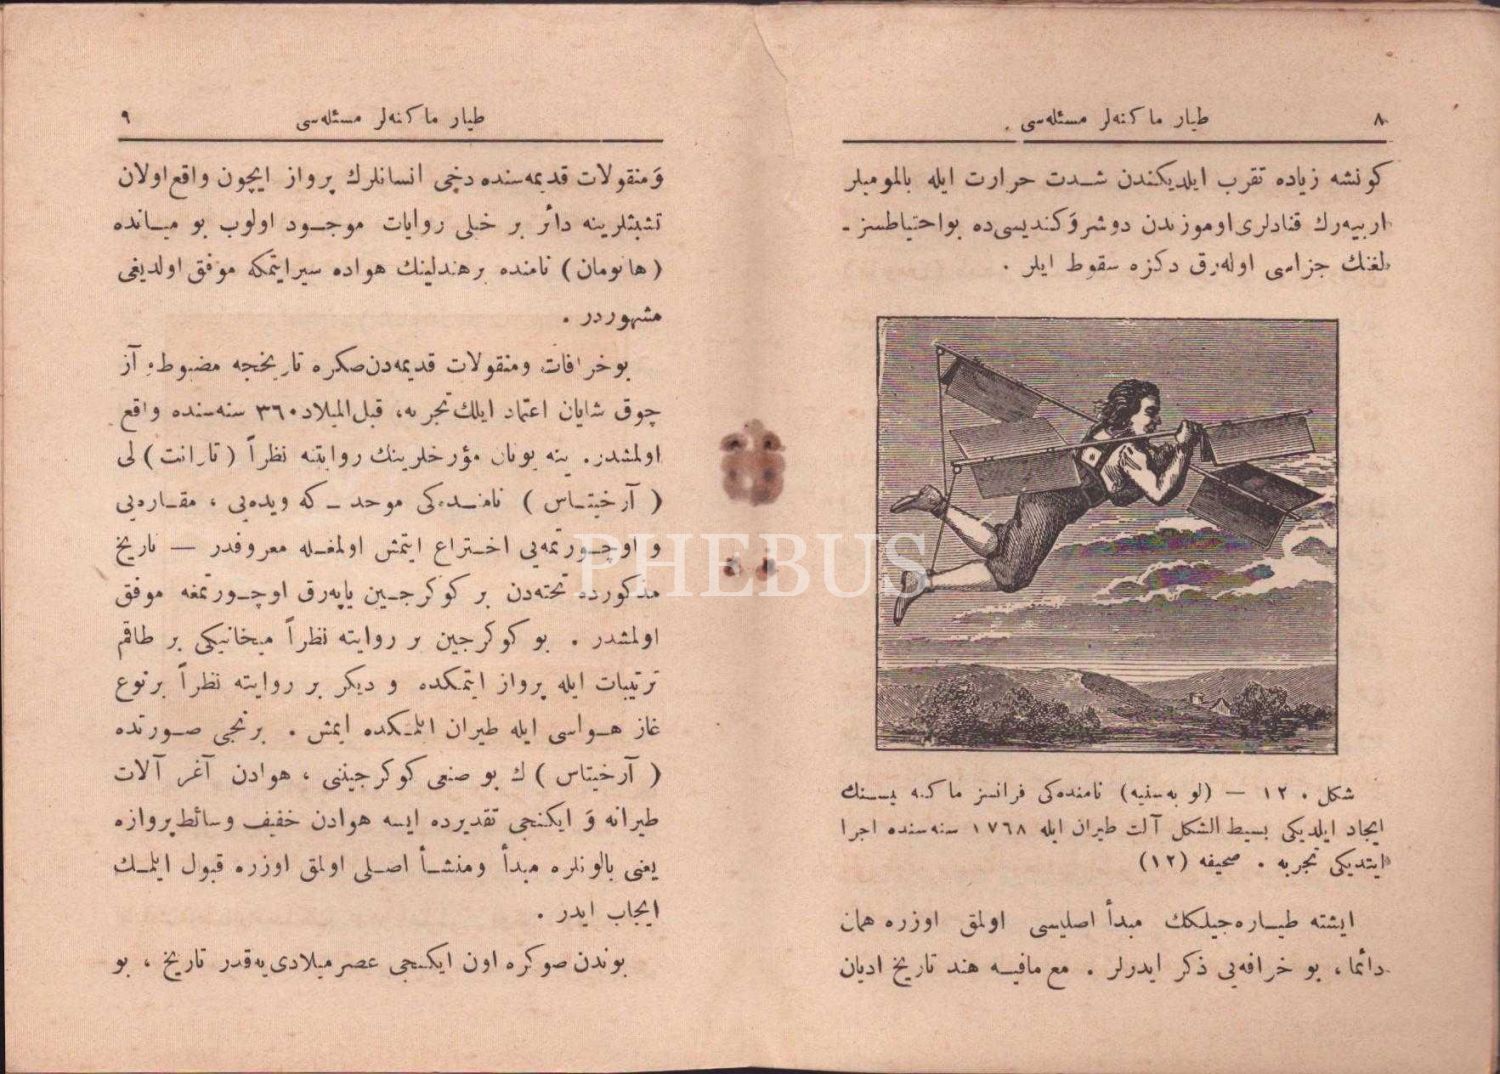 ٨
طيار ماكنه‌لر مسئله‌سى
كونشه زياده تقرب ايلديكندن شدت حرارت ايله بالمومبلر
اريیه‌رك قنادلرى اوموزندن دوشر وَكنديسى‌ده بو احتياطسز ـ
لغنك جزاسى اوله‌رق دكزه سقوط ايلر .
شكل . ١٢ — (لو به‌سنيه) نامنده‌كى فرانسز ماكنه يسنك
ايجاد ايلديكى بسيط الشكل آلت طيران ايله ١٧٦٨ سنه‌سنده اجرا
ايتديكى تجربه . صحيفه (١٢)
ايشته طياره‌جيلكك مبدأ اصليسى اولمق اوزره همان
دائما ، بو خرافه‌يى ذكر ايدرلر . مع مافيه هند تاريخ اديان
٩
طيار ماكنه‌لر مسئله‌سى
وَمنقولات قديمه‌سنده دخى انسانلرك پرواز ايچون واقع اولان
تشبثلرينه دائر بر خيلى روايات موجود اولوب بو ميانده
( هانومان ) نامنده برهندلينك هواده سيرايتمكه موفق اولديغى
مشهوردر .
بوخرافات ومنقولات قديمه‌دن‌صكره تاريخجه مضبوط، آز
چوق شايان اعتماد ايلك تجربه، قبل‌الميلاد ٣٦٠ سنه‌سنده واقع
اولمشدر. ينه يونان مؤرخلرينك روايتنه نظراً ( تارانت ) لى
( آرخيتاس ) نامنده‌كى موحد ـ كه ويده‌يى ، مقاره‌يى
و اوچورتمه‌يى اختراع ايتمش اولمغله معروفدر — تاريخ
مذكورده تخته‌دن بر كوكرجين ياپه‌رق اوچورتمغه موفق
اولمشدر . بو كوكرجين بر روايته نظراً ميخانيكى بر طاقم
ترتيبات ايله پرواز ايتمكده و ديكر بر روايته نظراً برنوع
غاز هواسى ايله طيران ايلمكده ايمش . برنجى صورتده
( آرخيتاس ) ك بو صنعى كوكرجيننى ، هوادن آغر آلات
طيرانه وَ ايكنجى تقديرده ايسه هوادن خفيف وسائط‌پروازه
يعنى بالونلره مبدأ ومنشأ اصلى اولمق اوزره قبول ايلمك
ايجاب ايدر .
بوندن صوكره اون ايكنجى عصر ميلادى‌يه‌قدر تاريخ ، بو
PHEBUS